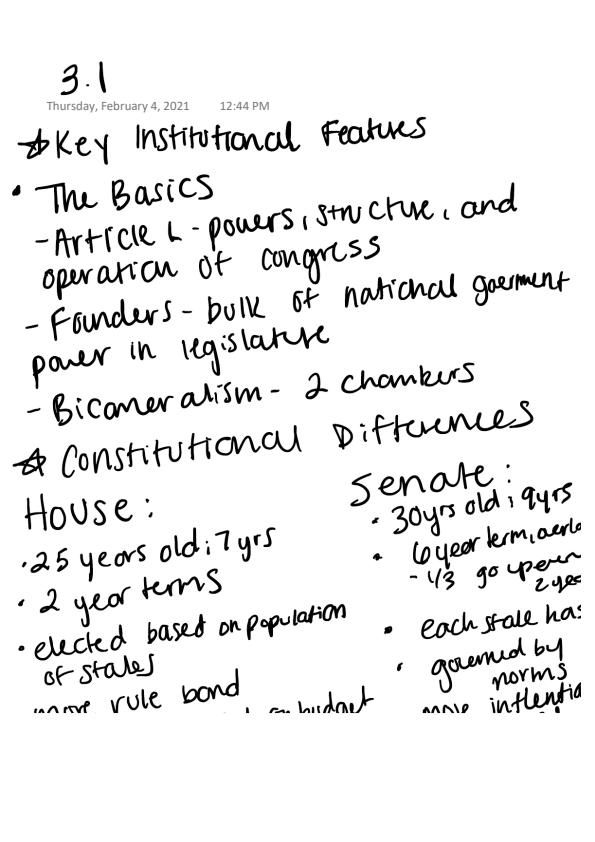 3.1
Thursday, February 4, 2021 12:44 PM
☆ Key Institutional Features
• The Basics
- Article 1 - powers, structure, and
operation of congress
- Founders - bulk of national goerment
power in legislature
- Bicameralism - 2 chambers
☆ Constitutional Differences
House:
• 25 years old; 7 yrs
• 2 year terms
• elected based on population
of states
more rule bond
on budget
Senate:
• 30 yrs old; 9 yrs
• 6 year term,
- 1/3 go up every
2 yea
• each state has
• governed by
norms
more